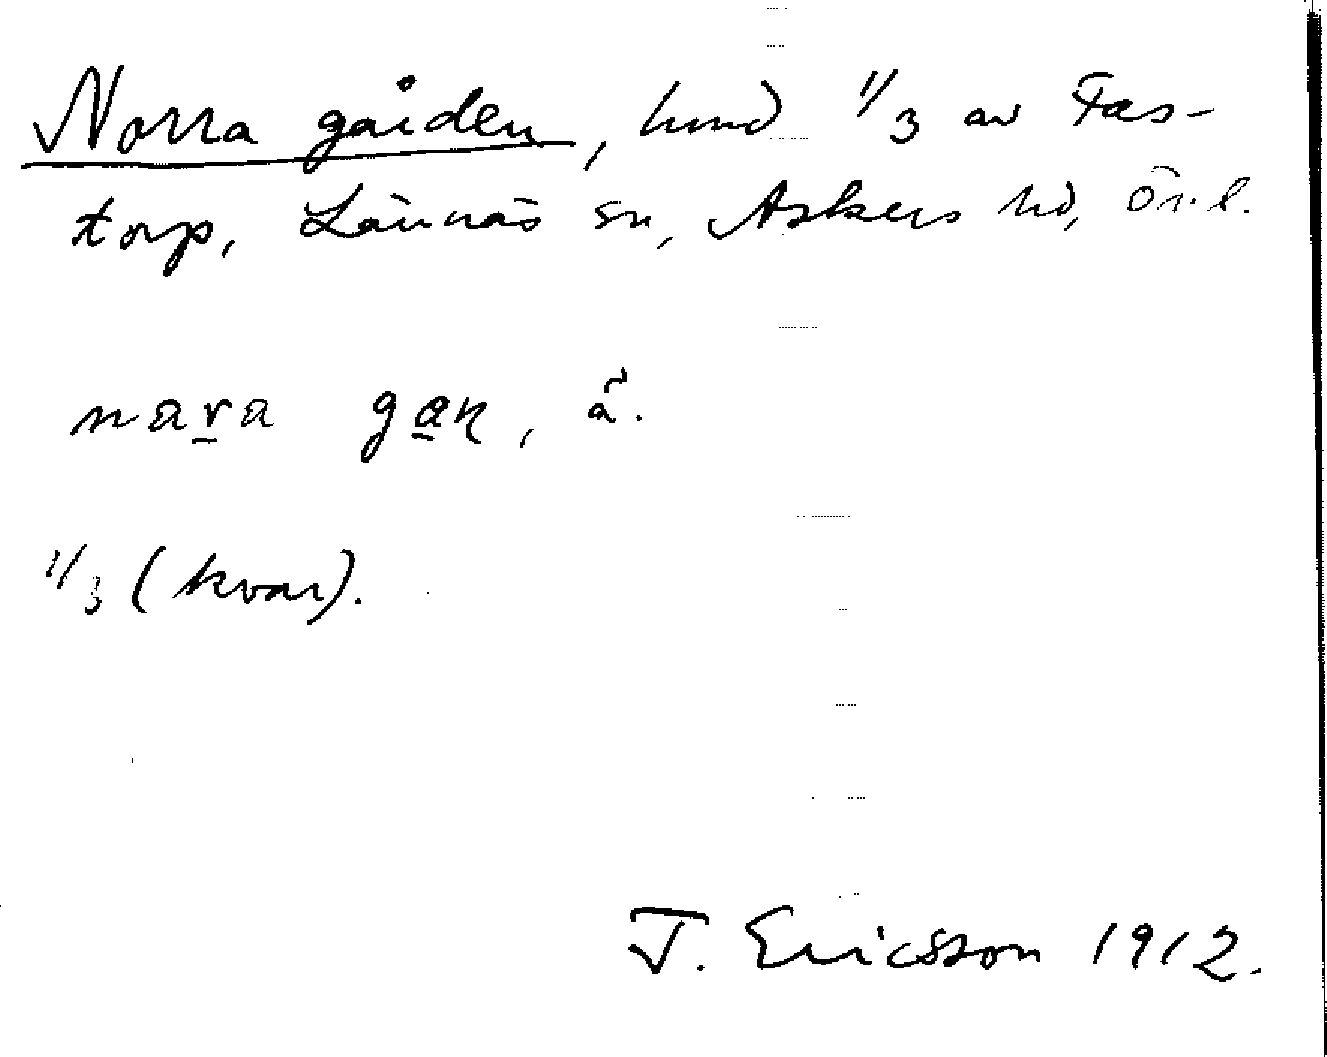 Norra gården, hmd 1/3 av Fas-
torp, Lännäs sn, Askers hd, Ör.l.
nara gaɳ, ã.
1/3 (kvar).
J. Ericsson 1912.